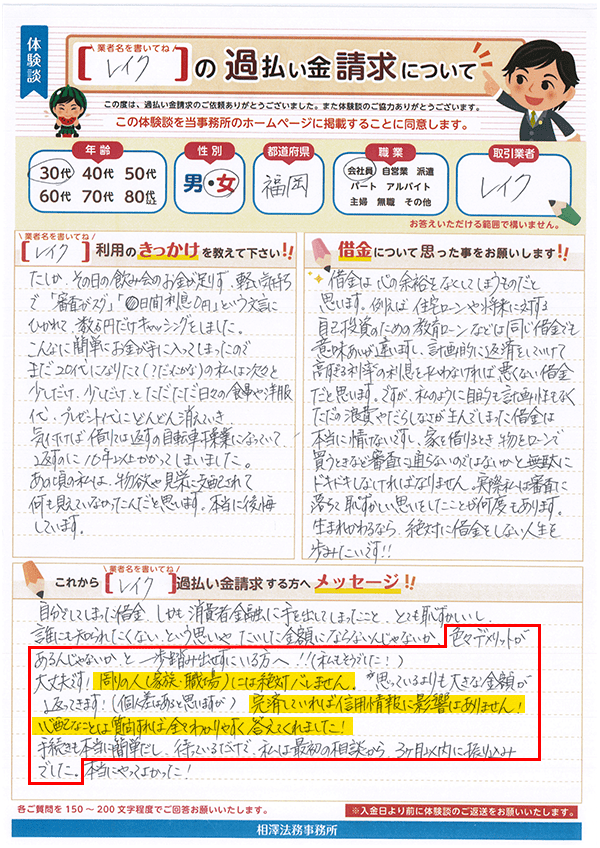 体験談
業者名を書いてね
[レイク]の過払い金請求について
この度は、過払い金請求のご依頼ありがとうございました。また体験談のご協力ありがとうございます。
この体験談を当事務所のホームページに掲載することに同意します。
年齢
30代 40代 50代
60代 70代 80代以上
性別
男・女
都道府県
福岡
職業
会社員 自営業 派遣
パート アルバイト
主婦 無職 その他
取引業者
レイク
お答えいただける範囲で構いません。
業者名を書いてね
[レイク]利用のきっかけを教えて下さい!!
たしか、その日の飲み会のお金が足りず、軽い気持ち
で「審査がスグ」「〇日間利息0円」という文言に
ひかれて、数万円だけキャッシングをしました。
こんなに簡単にお金が手に入ってしまったので
まだ20代になりたて(だったかな)の私は次々と
少しだけ、少しだけ、とただただ日々の食事や洋服
代、プレゼント代にどんどん消えていき
気付けば借りては返すの自転車操業になっていて
返すのに10年以上かかってしまいました。
あの頃の私は、物欲や見栄に支配されて
何も見えていなかったんだと思います。本当に後悔
しています。
借金について思った事をお願いします!!
借金は心の余裕をなくしてしまうものだと
思います。例えば住宅ローンや将来に対する
自己投資のための教育ローンなどは同じ借金でも
意味あいが違いますし、計画的に返済をしていけて
高すぎる利率の利息を払わなければ悪くない借金
だと思います。ですが、私のように目的も計画性もなく
ただの浪費やだらしなさが生んでしまった借金は
本当に情けないですし、家を借りるとき、物をローンで
買うときなど審査に通らないのではないかと無駄に
ドキドキしなければなりません。実際私は審査に
落ちて恥ずかしい思いをしたことが何度もあります。
生まれかわるなら、絶対に借金をしない人生を
歩みたいです!!
業者名を書いてね
これから[レイク]過払い金請求する方へメッセージ!!
自分でしてしまった借金、しかも消費者金融に手を出してしまったこと、とても恥ずかしいし、
誰にも知られたくない、という思いや、たいした金額にならないんじゃないか、色々デメリットが
あるんじゃないか、と一歩踏み出せずにいる方へ!!(私もそうでした!)
大丈夫です!周りの人(家族・職場)には絶対バレません。思っているよりも大きな金額が
返ってきます!(個人差あると思いますが)完済していれば信用情報に影響はありません!
心配なことは質問すれば全てわかりやすく答えてくれました!
手続きも本当に簡単だし、待っているだけで、私は最初の相談から、3ヶ月以内に振り込み
でした。本当にやってよかった!
各ご質問を150〜200文字程度でご回答お願いいたします。
※入金日より前に体験談のご返送をお願いいたします。
相澤法務事務所